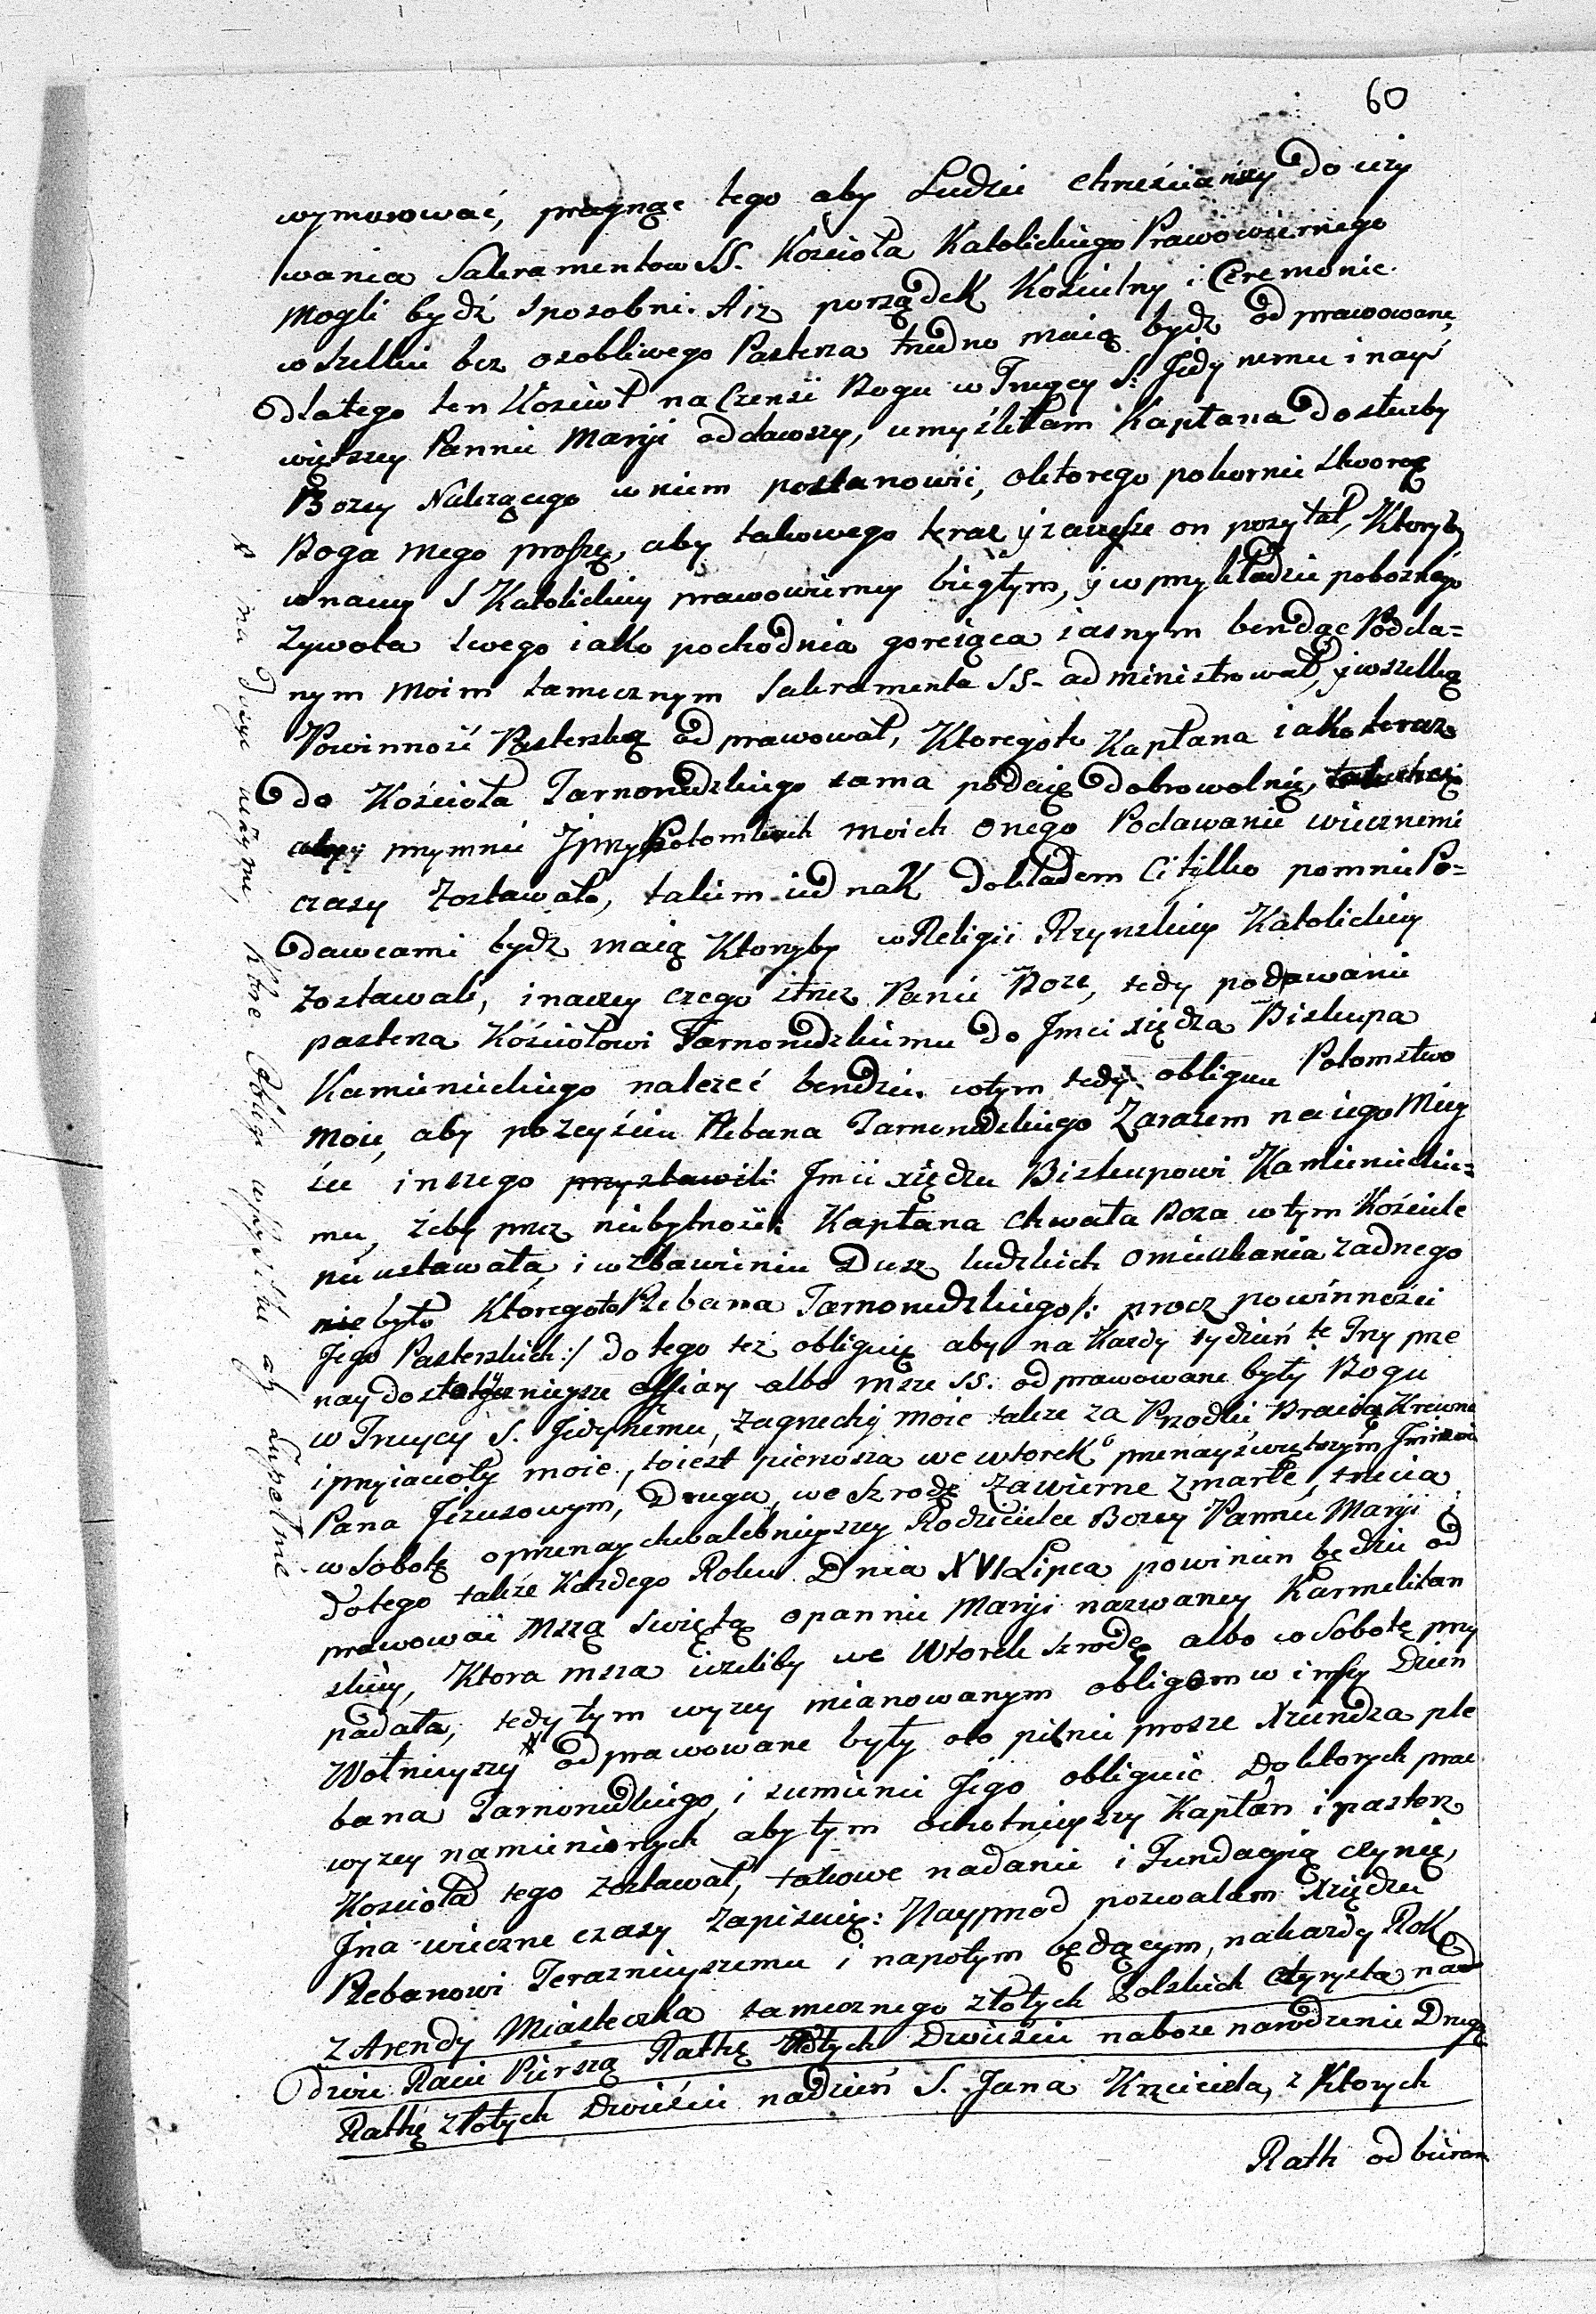 60
wymurować, pragnąc tego aby Ludzie chrześcianscy do uży
wania Sakramentow SS. Kościoła Katolickiego Prawowiernego
mogli bydź sposobni. A iż porządek Kościelny i Ceremonie
wszelkie bez osobliwego Pasterza trudno maią bydz odprawowane,
dlatego ten Kosciół na Czensć Bogu w Truycy S: Jedynemu i nay
większey Pannie Maryi oddawszy, umyśliłam Kapłana do służby
Bozey Należącego w niem postanowić, oktorego pokornie stworcę
Boga mego proszę, aby takowego teraz y zawsze on pozytał, Ktoryby
w nauce S Katolickiey prawowierney biegłym, y w przykładzie poboznego
Zywota swego iako pochodnia goreiąca iasnym bendąc Podda=
nym moim tamecznym Sakramenta SS. administrował, y wszelką
Powinność Pasterską odprawował, Ktoregoto Kapłana iako teraz
do Kościoła Tarnorudzkiego sama podaię dobrowolnie,
aby przymnie J przy Potomkach moich onego Podawanie wiecznemi
czasy zostawało, takim iednak dokładem Ci tylko pomnie Po=
dawcami bydz maią Ktorzyby w Religii Rzymskiey Katolickiey
zostawali, inaczey czego strzez Panie Boze, tedy podawanie
pasterza Kościołowi Tarnorudzkiemu do Jmci siędza Biskupa
Kamienieckiego nalezeć bendzie. wtym tedy obliguie Potomstwo
moie, aby po zeyściu Plebana Tarnorudzkiego Zarazem na iego Miey
sce inszego przystawili Jmci xiędzu Biskupowi Kamienieckie=
mu, żeby przez niebytność Kapłana chwała Boza wtym Kościele
nieustawała, i w zbawieniu Dusz ludzkich omieszkania zadnego
nie było Ktoregoto Plebana Tarnorudzkiego /: procz powinności
Jego Pasterskich :/ do tego też obliguię aby na Kazdy tydzień te Trzy prze
naydostoynieysze offiary albo msze SS: odprawowane były Bogu
w Truycy S. Jedynemu, Zagrzechy moie także za Przodki Bracią Krewne
i przyiacioły moie, toiest pierwsza we wtorek o przenayświętszym Jmieniu
Pana Jezusowym, Druga, we szrodę zawierne zmarłe, trzecia
w Sobotę o przenaychwalebnieyszey Rodzicielce Bozey Pannie Maryi i
dotego także Kazdego Roku Dnia XVI Lipca powinien będzie od
prawować mszą swiętą opannie Maryi nazwaney Karmelitan
skiey, Ktora msza ieżeliby we Wtorek szrodę albo w Sobotę przy
padała, tedy tym wyzey mianowanym obligom w inszy Dzień
Wolnieyszy * odprawowane były oto pilnie prosze Xiendza ple
bana Tarnorudzkiego i sumienie Jego obliguię Doktorych prac
wyzey namienionych aby tym ochotnieyszy Kapłan i pasterz
Kosciola tego zostawał, takowe nadanie i Fundacyią czynię,
J na wieczne czasy Zapisuię: Nayprzod pozwalam Xiędzu
Plebanowi Teraznieyszemu i napotym będącym, na kazdy Rok
z Arendy Miasteczka tamecznego złotych Polskich czterysta na
dwie Racie Pierszą Ratkę złotych Dwiescie naboze narodzenie Drugą
Ratkę złotych Dwieście nadzień S. Jana Krzciciela, z Ktorych
Ratk odbieran
* i na duszę uczynię, Ktore Obligi wszystkie aby zupełnie